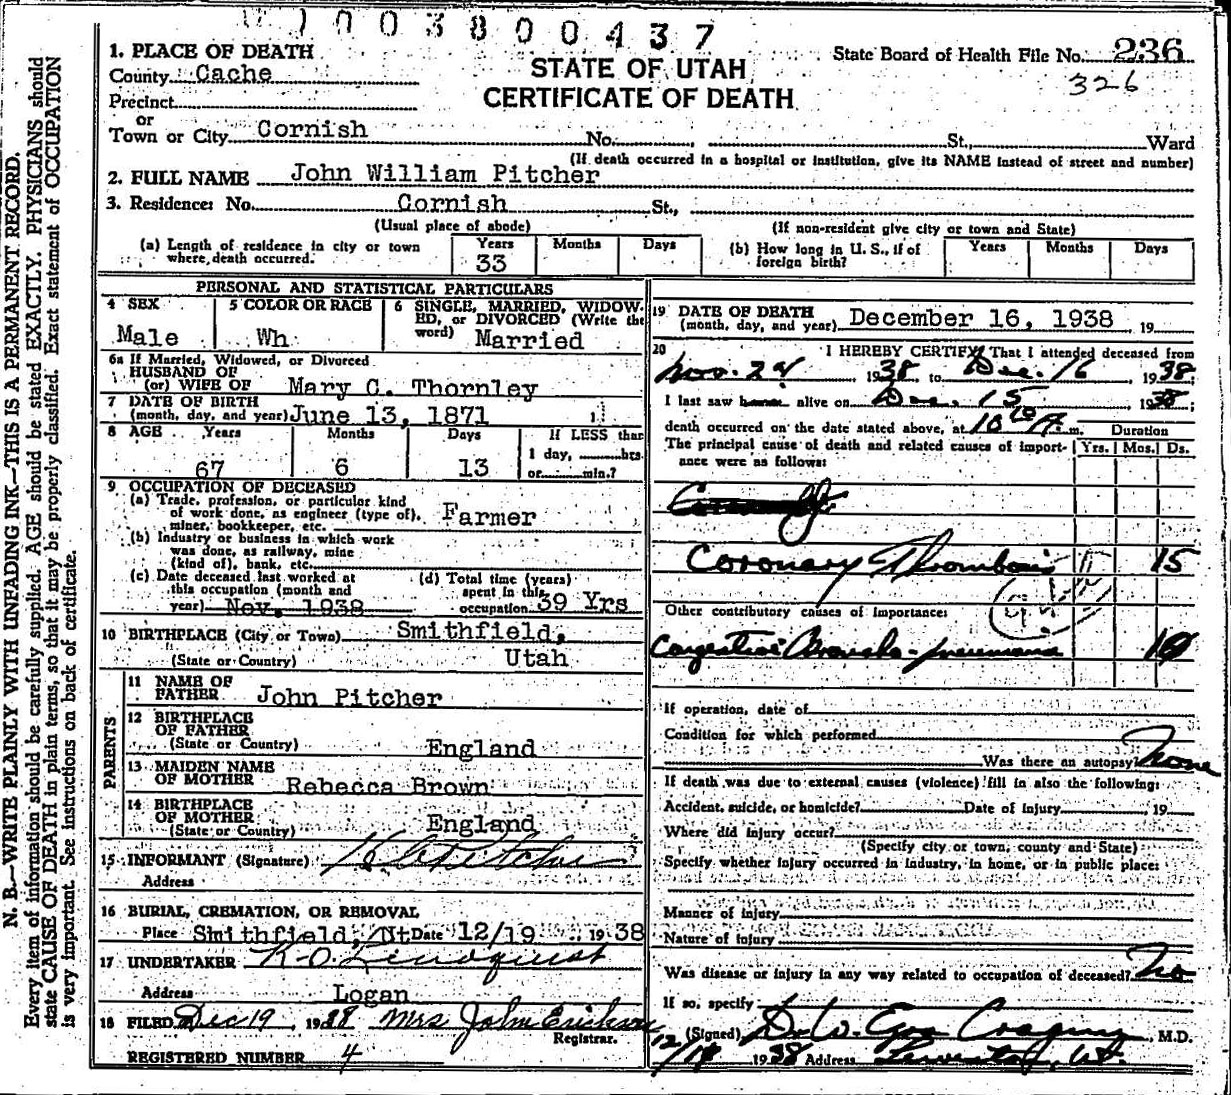 1003800437
State Board of Health File No. 236
326
STATE OF UTAH
CERTIFICATE OF DEATH
1. PLACE OF DEATH
County Cache
Precinct
or
Town or City Cornish No. , St., Ward
(If death occurred in a hospital or institution, give its NAME instead of street and number)
2. FULL NAME John William Pitcher
3. Residence: No. Cornish St.,
(Usual place of abode) (If non-resident give city or town and State)
(a) Length of residence in city or town where death occurred. Years 33 Months Days
(b) How long in U. S., if of foreign birth? Years Months Days
PERSONAL AND STATISTICAL PARTICULARS
4 SEX Male
5 COLOR OR RACE Wh
6 SINGLE, MARRIED, WIDOWED, or DIVORCED (Write the word) Married
6a If Married, Widowed, or Divorced
HUSBAND OF
(or) WIFE OF Mary C. Thornley
7 DATE OF BIRTH
(month, day, and year) June 13, 1871
8 AGE Years 67 Months 6 Days 13
If LESS than
1 day, hrs.
or min.?
9 OCCUPATION OF DECEASED
(a) Trade, profession, or particular kind
of work done, as engineer (type of),
miner, bookkeeper, etc. Farmer
(b) Industry or business in which work
was done, as railway, mine
(kind of), bank, etc.
(c) Date deceased last worked at
this occupation (month and
year) Nov. 1938
(d) Total time (years)
spent in this
occupation 39 Yrs
10 BIRTHPLACE (City or Town) Smithfield,
(State or Country) Utah
PARENTS
11 NAME OF
FATHER John Pitcher
12 BIRTHPLACE
OF FATHER
(State or Country) England
13 MAIDEN NAME
OF MOTHER Rebecca Brown
14 BIRTHPLACE
OF MOTHER
(State or Country) England
15 INFORMANT (Signature) Pitcher
Address
16 BURIAL, CREMATION, OR REMOVAL
Place Smithfield, Ut Date 12/19 1938
17 UNDERTAKER K O Lindquist
Address Logan
18 FILED Dec 19, 1938 Mrs John Erickson
Registrar.
REGISTERED NUMBER 4
19 DATE OF DEATH
(month, day, and year) December 16, 1938, 19
20 I HEREBY CERTIFY, That I attended deceased from
Nov. 24, 1938, to Dec. 16, 1938,
I last saw alive on Dec. 15, 1938;
death occurred on the date stated above, at 10 A. m. Duration
The principal cause of death and related causes of importance were as follows: Yrs. Mos. Ds.
Coronary Thrombosis 15
Other contributory causes of importance:
Congestive Broncho-pneumonia 10
If operation, date of
Condition for which performed
Was there an autopsy None
If death was due to external causes (violence) fill in also the following:
Accident, suicide, or homicide? Date of injury , 19
Where did injury occur?
(Specify city or town, county and State)
Specify whether injury occurred in industry, in home, or in public place:
Manner of injury
Nature of injury
Was disease or injury in any way related to occupation of deceased? No
If so, specify
(Signed) Dr. W. Geo , M.D.
1938 Address Lewiston, Ut.
N. B.—WRITE PLAINLY WITH UNFADING INK—THIS IS A PERMANENT RECORD.
Every item of information should be carefully supplied. AGE should be stated EXACTLY. PHYSICIANS should
state CAUSE OF DEATH in plain terms, so that it may be properly classified. Exact statement of OCCUPATION
is very important. See instructions on back of certificate.